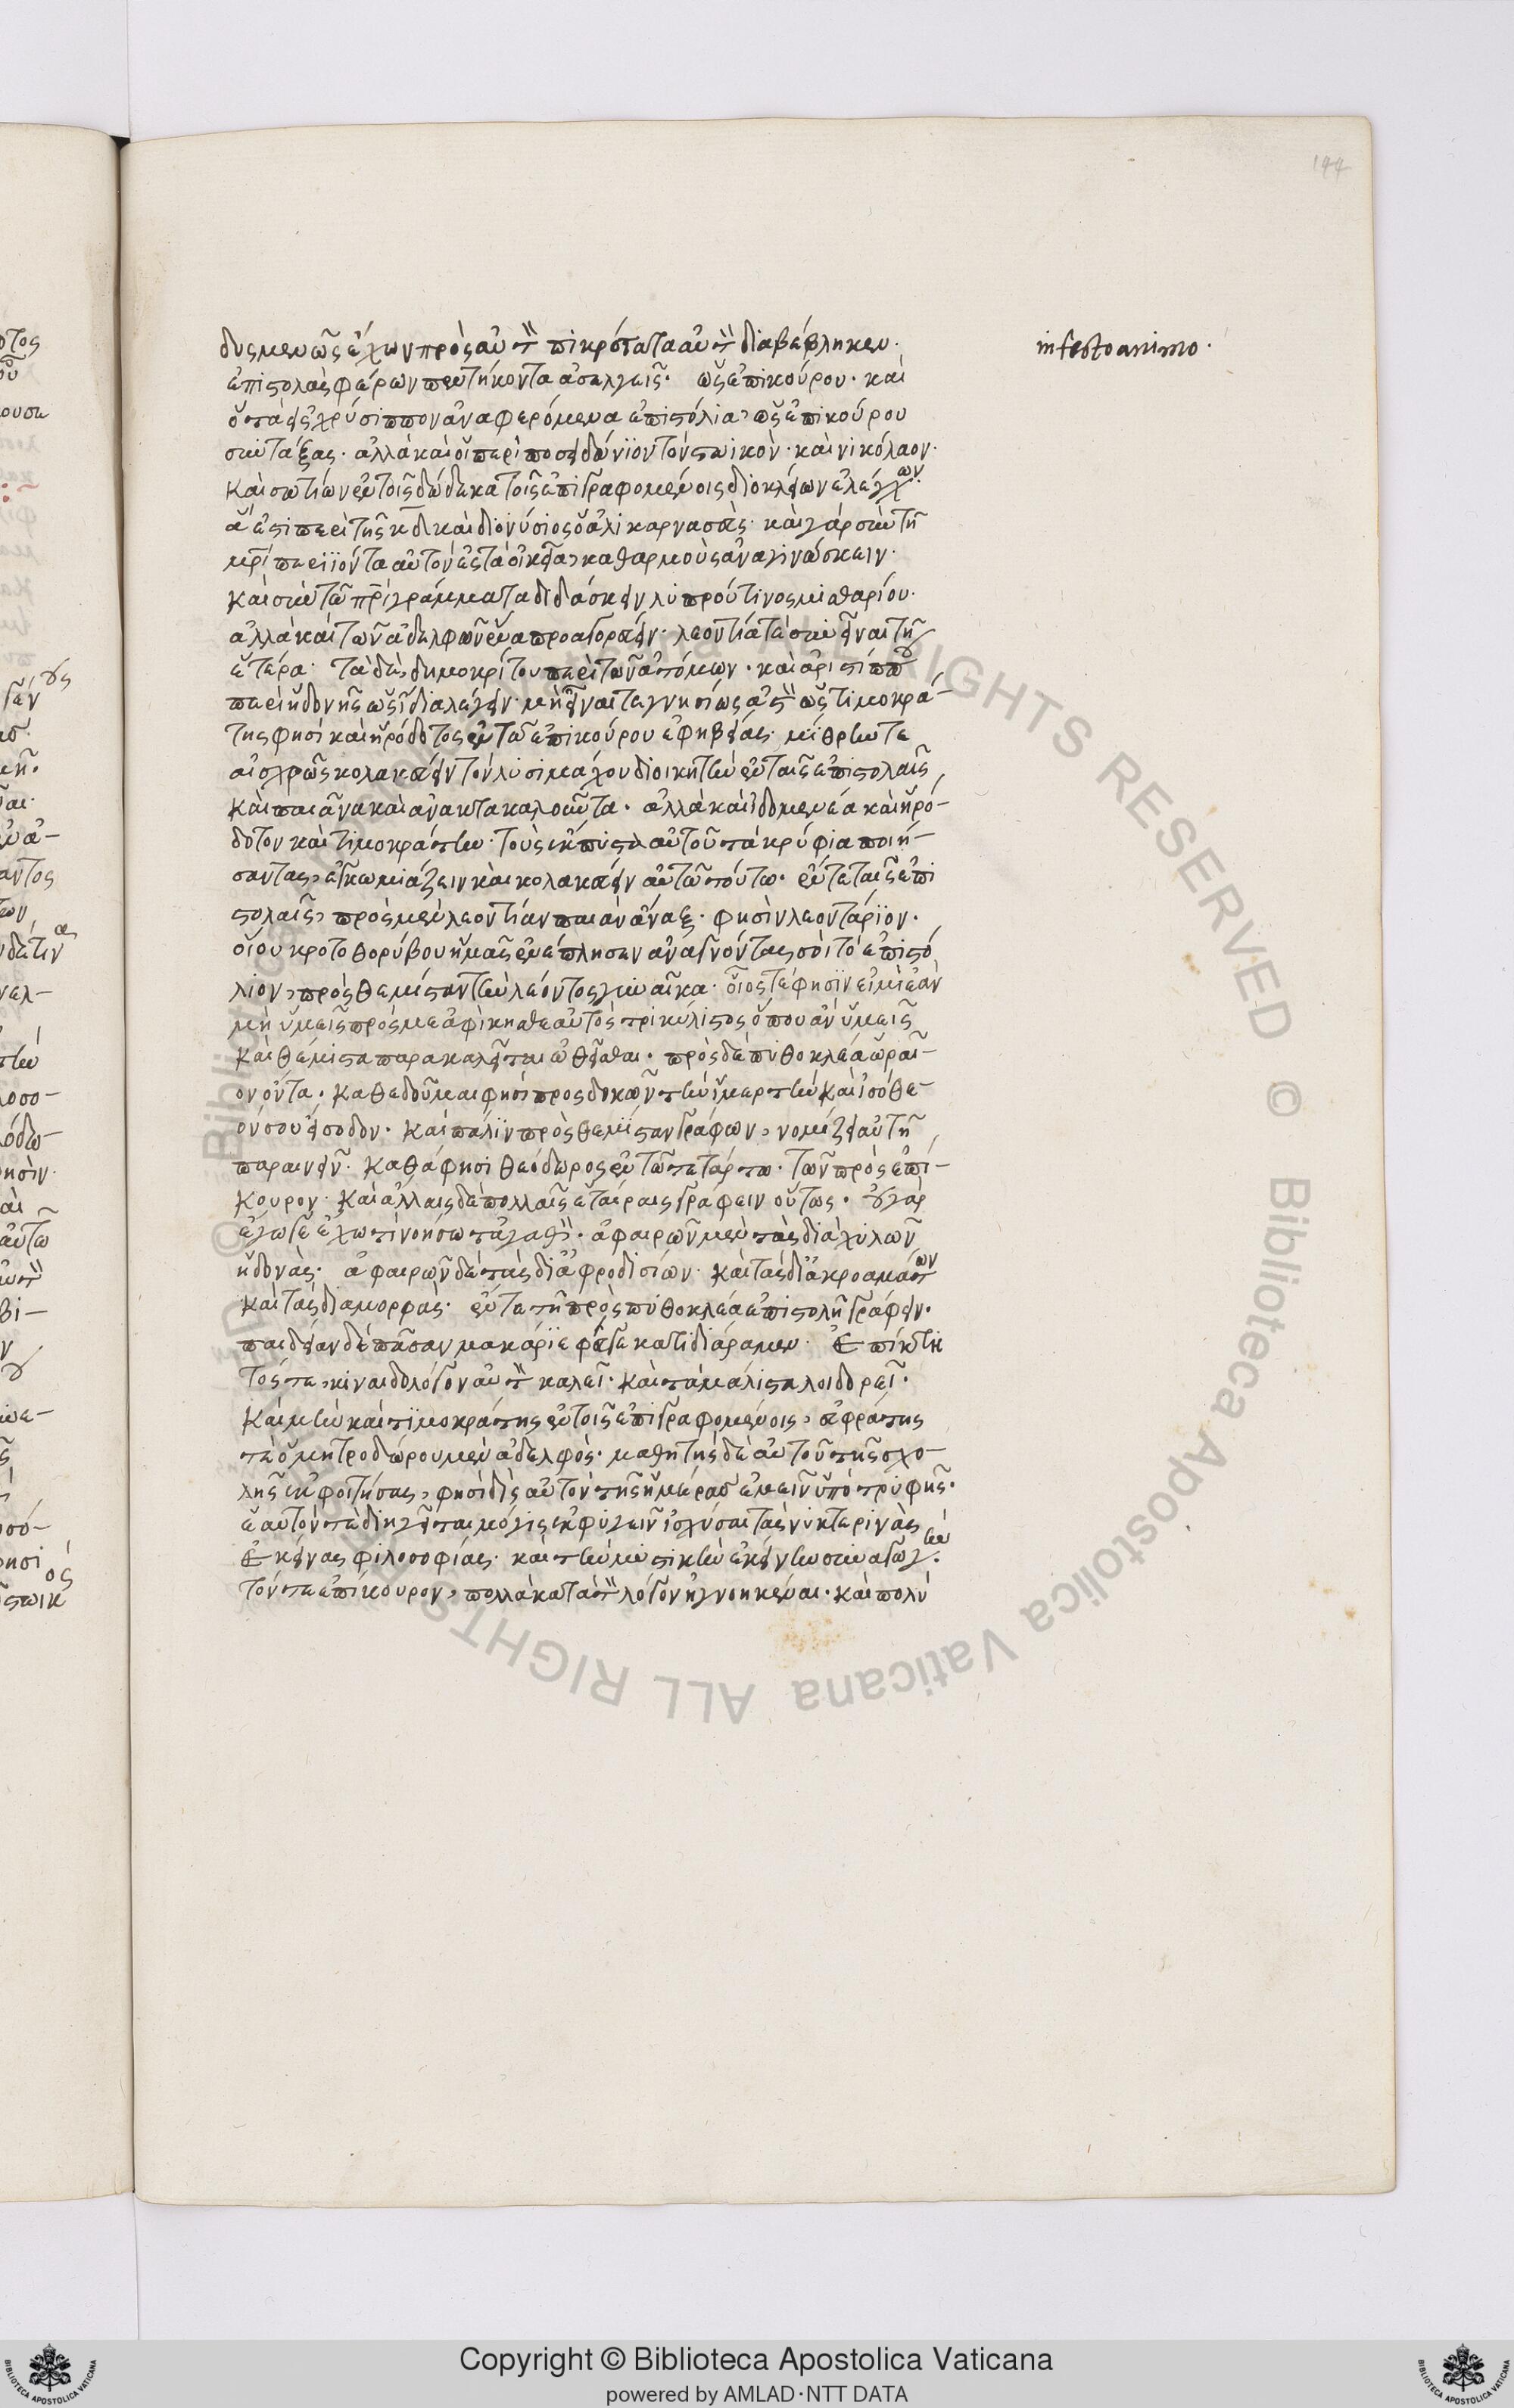 144
δυσμενῶς ἔχων πρὸς αὐτὸν πικρότατα αὐτὸν διαβέβληκεν.
infesto animo.
ἐπιστολὰς φέρων πεντήκοντα ἀσελγεῖς. ὡς ἐπικούρου. καὶ
ὁ τὰ εἰς χρύσιππον ἀναφερόμενα ἐπιστόλια, ὡς ἐπικούρου
συντάξας. ἀλλὰ καὶ οἱ περὶ ποσειδώνιον τὸν στωικὸν. καὶ νικόλαον.
καὶ σωτίων ἐν τοῖς δώδεκα τοῖς ἐπιγραφομένοις διοκλείων ἐλέγχων.
ἅ ἐστι περὶ τῆς κδ καὶ διονύσιος ὁ ἁλικαρνασεὺς. καὶ γὰρ σὺν τῇ
μρὶ περιϊόντα αὐτὸν ἐς τὰ οἰκεῖα, καθαρμοὺς ἀναγινώσκειν.
καὶ σὺν τῷ πρὶ γράμματα διδάσκειν λυπροῦ τινος μισθαρίου.
ἀλλὰ καὶ τῶν ἀδελφῶν ἕνα προαγορεύειν. λεοντία τε συνεῖναι τῇ
ἑτέρα. τὰ δὲ, δημοκρίτου περὶ τῶν ἀτόμων. καὶ ἀριστίππου
περὶ ἡδονῆς ὡς ἴδια λέγειν. μὴ εἶναί τε γνησίως ἀστὸν ὡς τιμοκρά-
της φησί καὶ ἡρόδοτος ἐν τῷ ἐπικούρου ἐφηβείας. μίθρην τε
αἰσχρῶς κολακεύειν τὸν λυσιμάχου διοικητὴν ἐν ταῖς ἐπιστολαῖς,
καὶ παιᾶνα καὶ ἄνακτα καλοῦντα. ἀλλὰ καὶ ἰδομενέα καὶ ἡρό-
δοτον καὶ τιμοκράτην. τοὺς ἔκπυστα αὐτοῦ τὰ κρύφια ποιή-
σαντας, ἐγκωμιάζειν καὶ κολακεύειν αὐτῶ τούτω. ἔν τε ταῖς ἐπι
στολαῖς, πρὸς μὲν λεοντίαν παιὰν ἄναξ. φησὶν λεοντάριον.
οἵου κροτοθορύβου ἡμᾶς ἐνέπλησεν ἀναγνόντας σοὶ τὸ ἐπιστό
λιον, πρὸς θεμίσταν τὴν λέοντος γυναῖκα. οἷός τε φησὶν εἰμὶ ἐὰν
μὴ ὑμεῖς πρὸς με ἀφίκησθε αὐτὸς τρικύλιστος ὅπου ἂν ὑμεῖς
καὶ θέμιστα παρακαλεῖται ὠθεῖσθαι. πρὸς δὲ πυθοκλέα ὡραῖ-
ον ὄντα. καθεδοῦμαι φησί προσδοκῶν τὴν ἱμερτὴν καὶ ἰσόθε-
όν σου εἴσοδον. καὶ πάλιν πρὸς θεμίσταν γράφων, νομίζει αὐτῇ
παραινεῖν. καθά φησι θεόδωρος ἐν τῷ τετάρτω. τῶν πρὸς ἐπί-
κουρον. καὶ ἄλλαις δὲ πολλαῖς ἑταίραις γράφειν οὕτως. οὐ γὰρ
ἔγωγε ἔχω τί νοήσω τἀγαθὸν. ἀφαιρῶν μὲν τὰς διὰ χυλῶν
ἡδονὰς. ἀφαιρῶν δὲ τὰς δι' ἀφροδισίων. καὶ τὰς δι' ἀκροαμάτων
καὶ τὰς διὰ μορφὰς. ἔν τε τῇ πρὸς πυθοκλέα ἐπιστολῇ γράφειν.
παιδείαν δὲ πᾶσαν μακάριε φεῦγε κατιδιάραμεν. Ἐπίκτη
τός τε, κιναιδολόγον αὐτὸν καλεῖ. καὶ τὰ μάλιστα λοιδορεῖ.
καὶ μὴν καὶ τιμοκράτης ἐν τοῖς ἐπιγραφομένοις, εὐφράτης
τε ὁ μητροδώρου μὲν ἀδελφὸς. μαθητὴς δὲ αὐτοῦ τῆς σχο-
λῆς ἐκφοιτήσας, φησὶ δὶς αὐτὸν τῆς ἡμέρας ἐμεῖν ὑπὸ τρυφῆς.
ἑαυτόν τε διηγεῖται μόγις ἐκφυγεῖν ἰσχύσαι τὰς νυκτερινὰς
ἐκείνας φιλοσοφίας. καὶ τὴν μυστικὴν ἐκείνην συναγωγὴν.
τόν τε ἐπίκουρον, πολλὰ κατὰ τὸν λόγον ἠγνοηκέναι. καὶ πολὺ
Copyright © Biblioteca Apostolica Vaticana
powered by AMLAD·NTT DATA